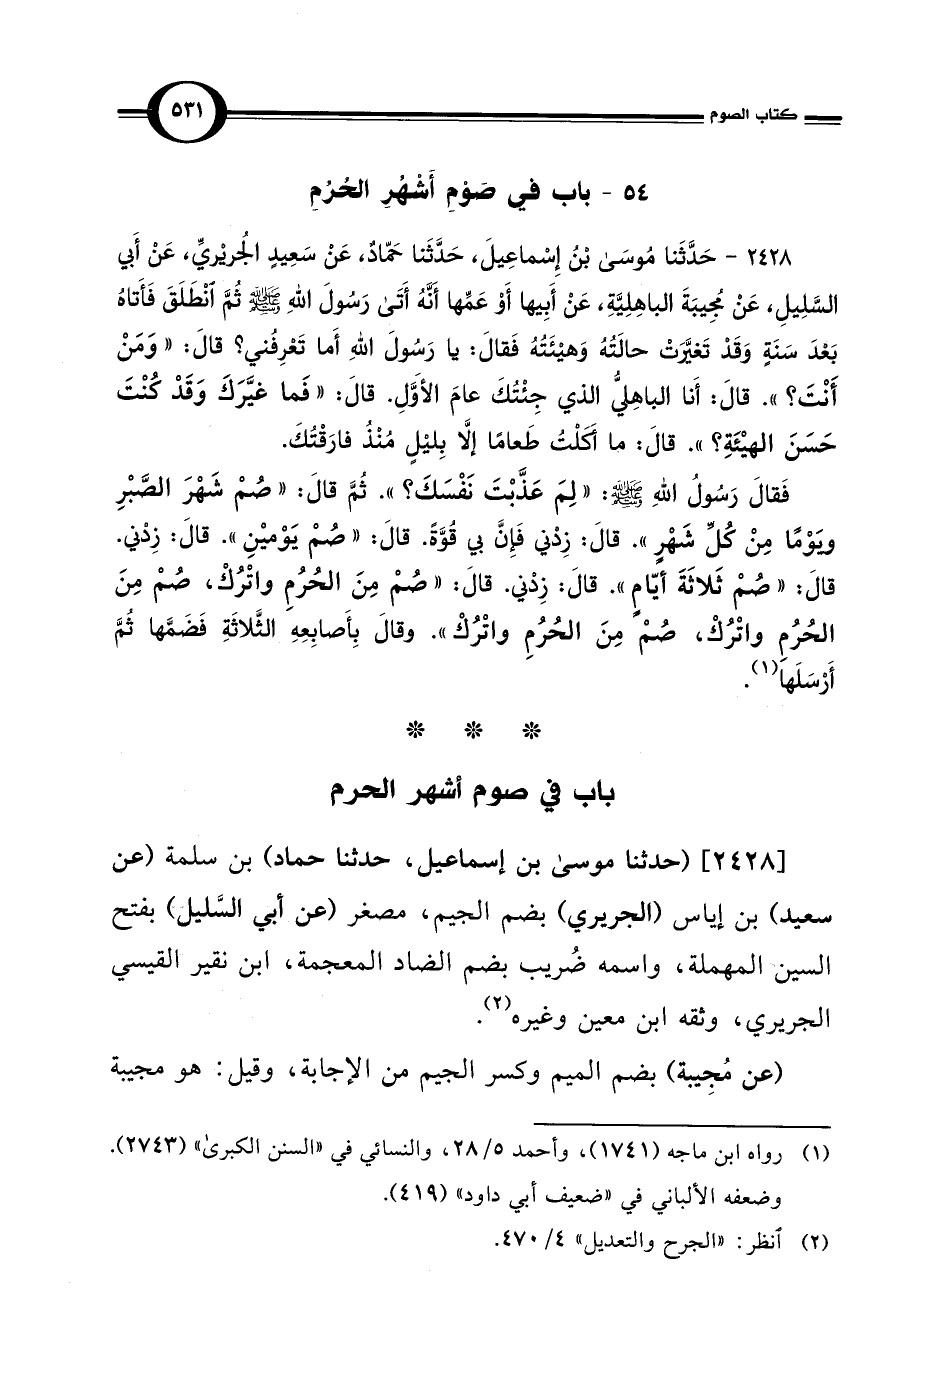 كتاب الصوم ٥٣١
٥٤ - باب في صَوْمِ أَشْهُرِ الحُرُمِ
٢٤٢٨ - حَدَّثَنا مُوسَىٰ بْنُ إِسْماعِيلَ، حَدَّثَنا حَمّادٌ، عَنْ سَعِيدٍ الجُرَيْريِّ، عَنْ أَبي
السَّلِيلِ، عَنْ مُجِيبَةَ الباهِليَّةِ، عَنْ أَبِيها أَوْ عَمِّها أَنَّهُ أَتَىٰ رَسُولَ اللهِ ﷺ ثُمَّ ٱنْطَلَقَ فَأَتاهُ
بَعْدَ سَنَةٍ وَقَدْ تَغَيَّرَتْ حالَتُهُ وَهَيْئَتُهُ فَقالَ: يا رَسُولَ اللهِ أَما تَعْرِفُني؟ قالَ: « وَمَنْ
أَنْتَ؟ ». قالَ: أَنا الباهِليُّ الذي جِئْتُكَ عامَ الأَوَّلِ. قالَ: « فَما غَيَّرَكَ وَقَدْ كُنْتَ
حَسَنَ الهيْئَةِ؟ ». قالَ: ما أَكَلْتُ طَعامًا إِلَّا بِلَيْلٍ مُنْذُ فارَقْتُكَ.
فَقالَ رَسُولُ اللهِ ﷺ: « لِمَ عَذَّبْتَ نَفْسَكَ؟ ». ثُمَّ قالَ: « صُمْ شَهْرَ الصَّبْرِ
ويَوْمًا مِنْ كُلِّ شَهْرٍ ». قالَ: زِدْني فَإِنَّ بي قُوَّةً. قالَ: « صُمْ يَوْمينِ ». قالَ: زِدْني.
قالَ: « صُمْ ثَلاثَةَ أَيّامٍ ». قالَ: زِدْني. قالَ: « صُمْ مِنَ الحُرُمِ واتْرُكْ، صُمْ مِنَ
الحُرُمِ واتْرُكْ، صُمْ مِنَ الحُرُمِ واتْرُكْ ». وقالَ بِأَصابِعِهِ الثَّلاثَةِ فَضَمَّها ثُمَّ
أَرْسَلَها(١).
* * *
باب في صوم أشهر الحرم
[٢٤٢٨] (حدثنا موسىٰ بن إسماعيل، حدثنا حماد) بن سلمة (عن
سعيد) بن إياس (الجريري) بضم الجيم، مصغر (عن أبي السَّليل) بفتح
السين المهملة، واسمه ضُريب بضم الضاد المعجمة، ابن نقير القيسي
الجريري، وثقه ابن معين وغيره(٢).
(عن مُجِيبة) بضم الميم وكسر الجيم من الإجابة، وقيل: هو مجيبة
(١) رواه ابن ماجه (١٧٤١)، وأحمد ٥/ ٢٨، والنسائي في «السنن الكبرىٰ» (٢٧٤٣).
وضعفه الألباني في «ضعيف أبي داود» (٤١٩).
(٢) ٱنظر: «الجرح والتعديل» ٤/ ٤٧٠.